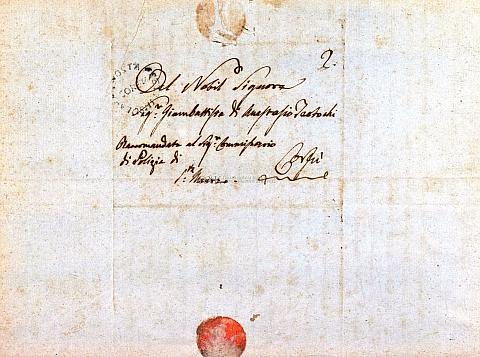 2.
Al Nobil Signore
Sigr Giambattista di Anastasio Teotochi
Raccomandata al Sigr Commissario
di Polizia di Corfù
Sta Maura